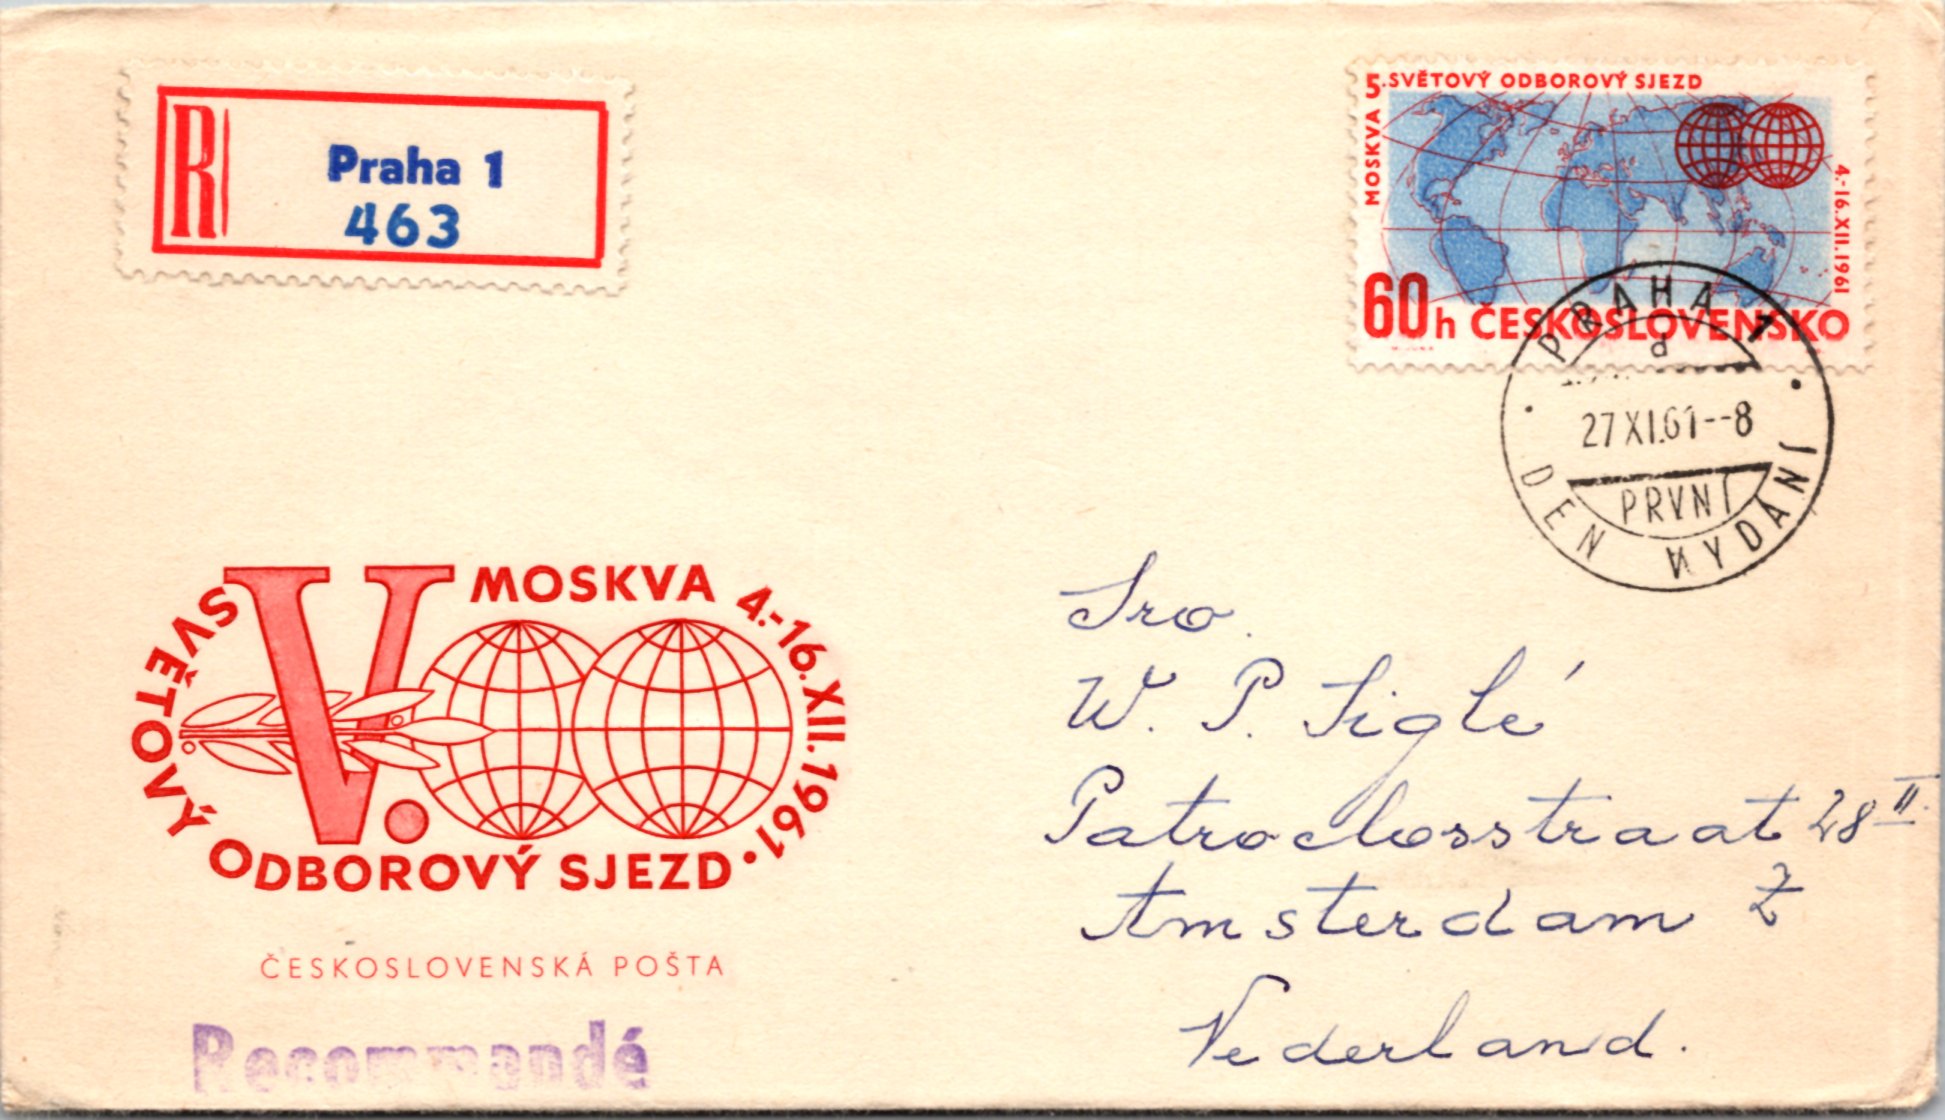 R
Praha 1
463
5. SVĚTOVÝ ODBOROVÝ SJEZD
MOSKVA
4.-16.XII.1961
60h ČESKOSLOVENSKO
PRAHA 1
d
27 XI.61--8
PRVNÍ
DEN VYDÁNÍ
V.
MOSKVA 4.-16.XII.1961.
SVĚTOVÝ ODBOROVÝ SJEZD
ČESKOSLOVENSKÁ POŠTA
Recommandé
W. P. Siglé
Patroclosstraat 28 II.
Amsterdam Z
Nederland.